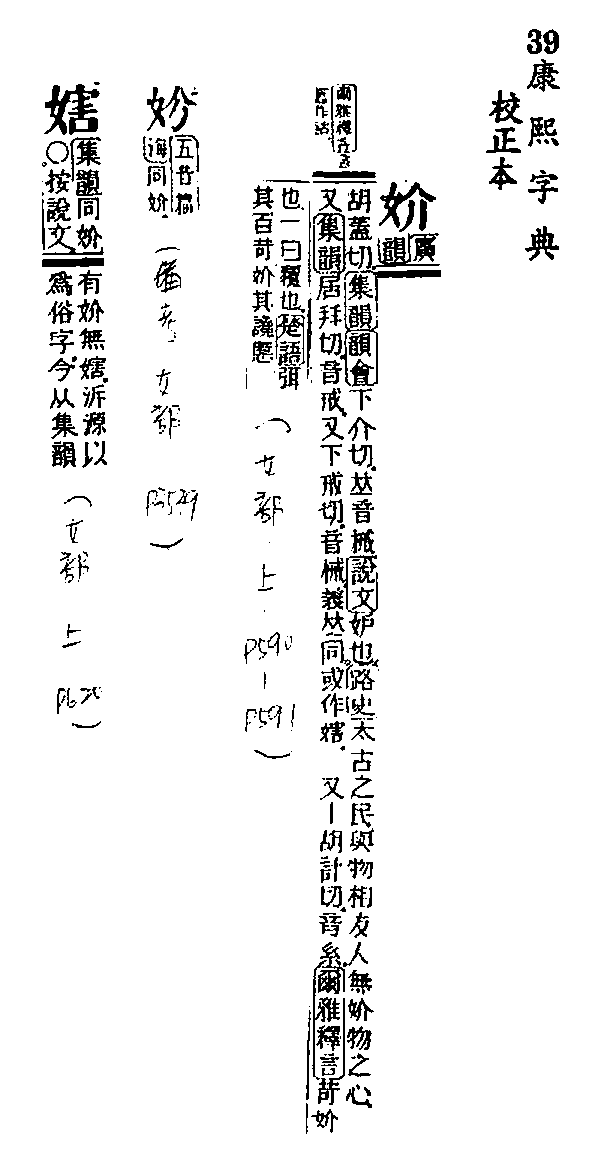 39
康熙字典
校正本
妎
廣韻
胡蓋切集韻韻會下介切𠀤音械說文妒也路史太古之民與物相友人無妎物之心
又集韻居拜切音戒又下戒切音械義𠀤同或作㛘 又丨胡計切音系爾雅釋言苛妎
也一曰穢也楚語弭
其百苛妎其讒慝
爾雅釋言
妎
五音
海同妎
備考 女部
P549
（女部 上 P590-P591）
㛘
集韻同妎
○按說文
有妎無㛘泝源以
爲俗字今从集韻
（女部 上 P620）